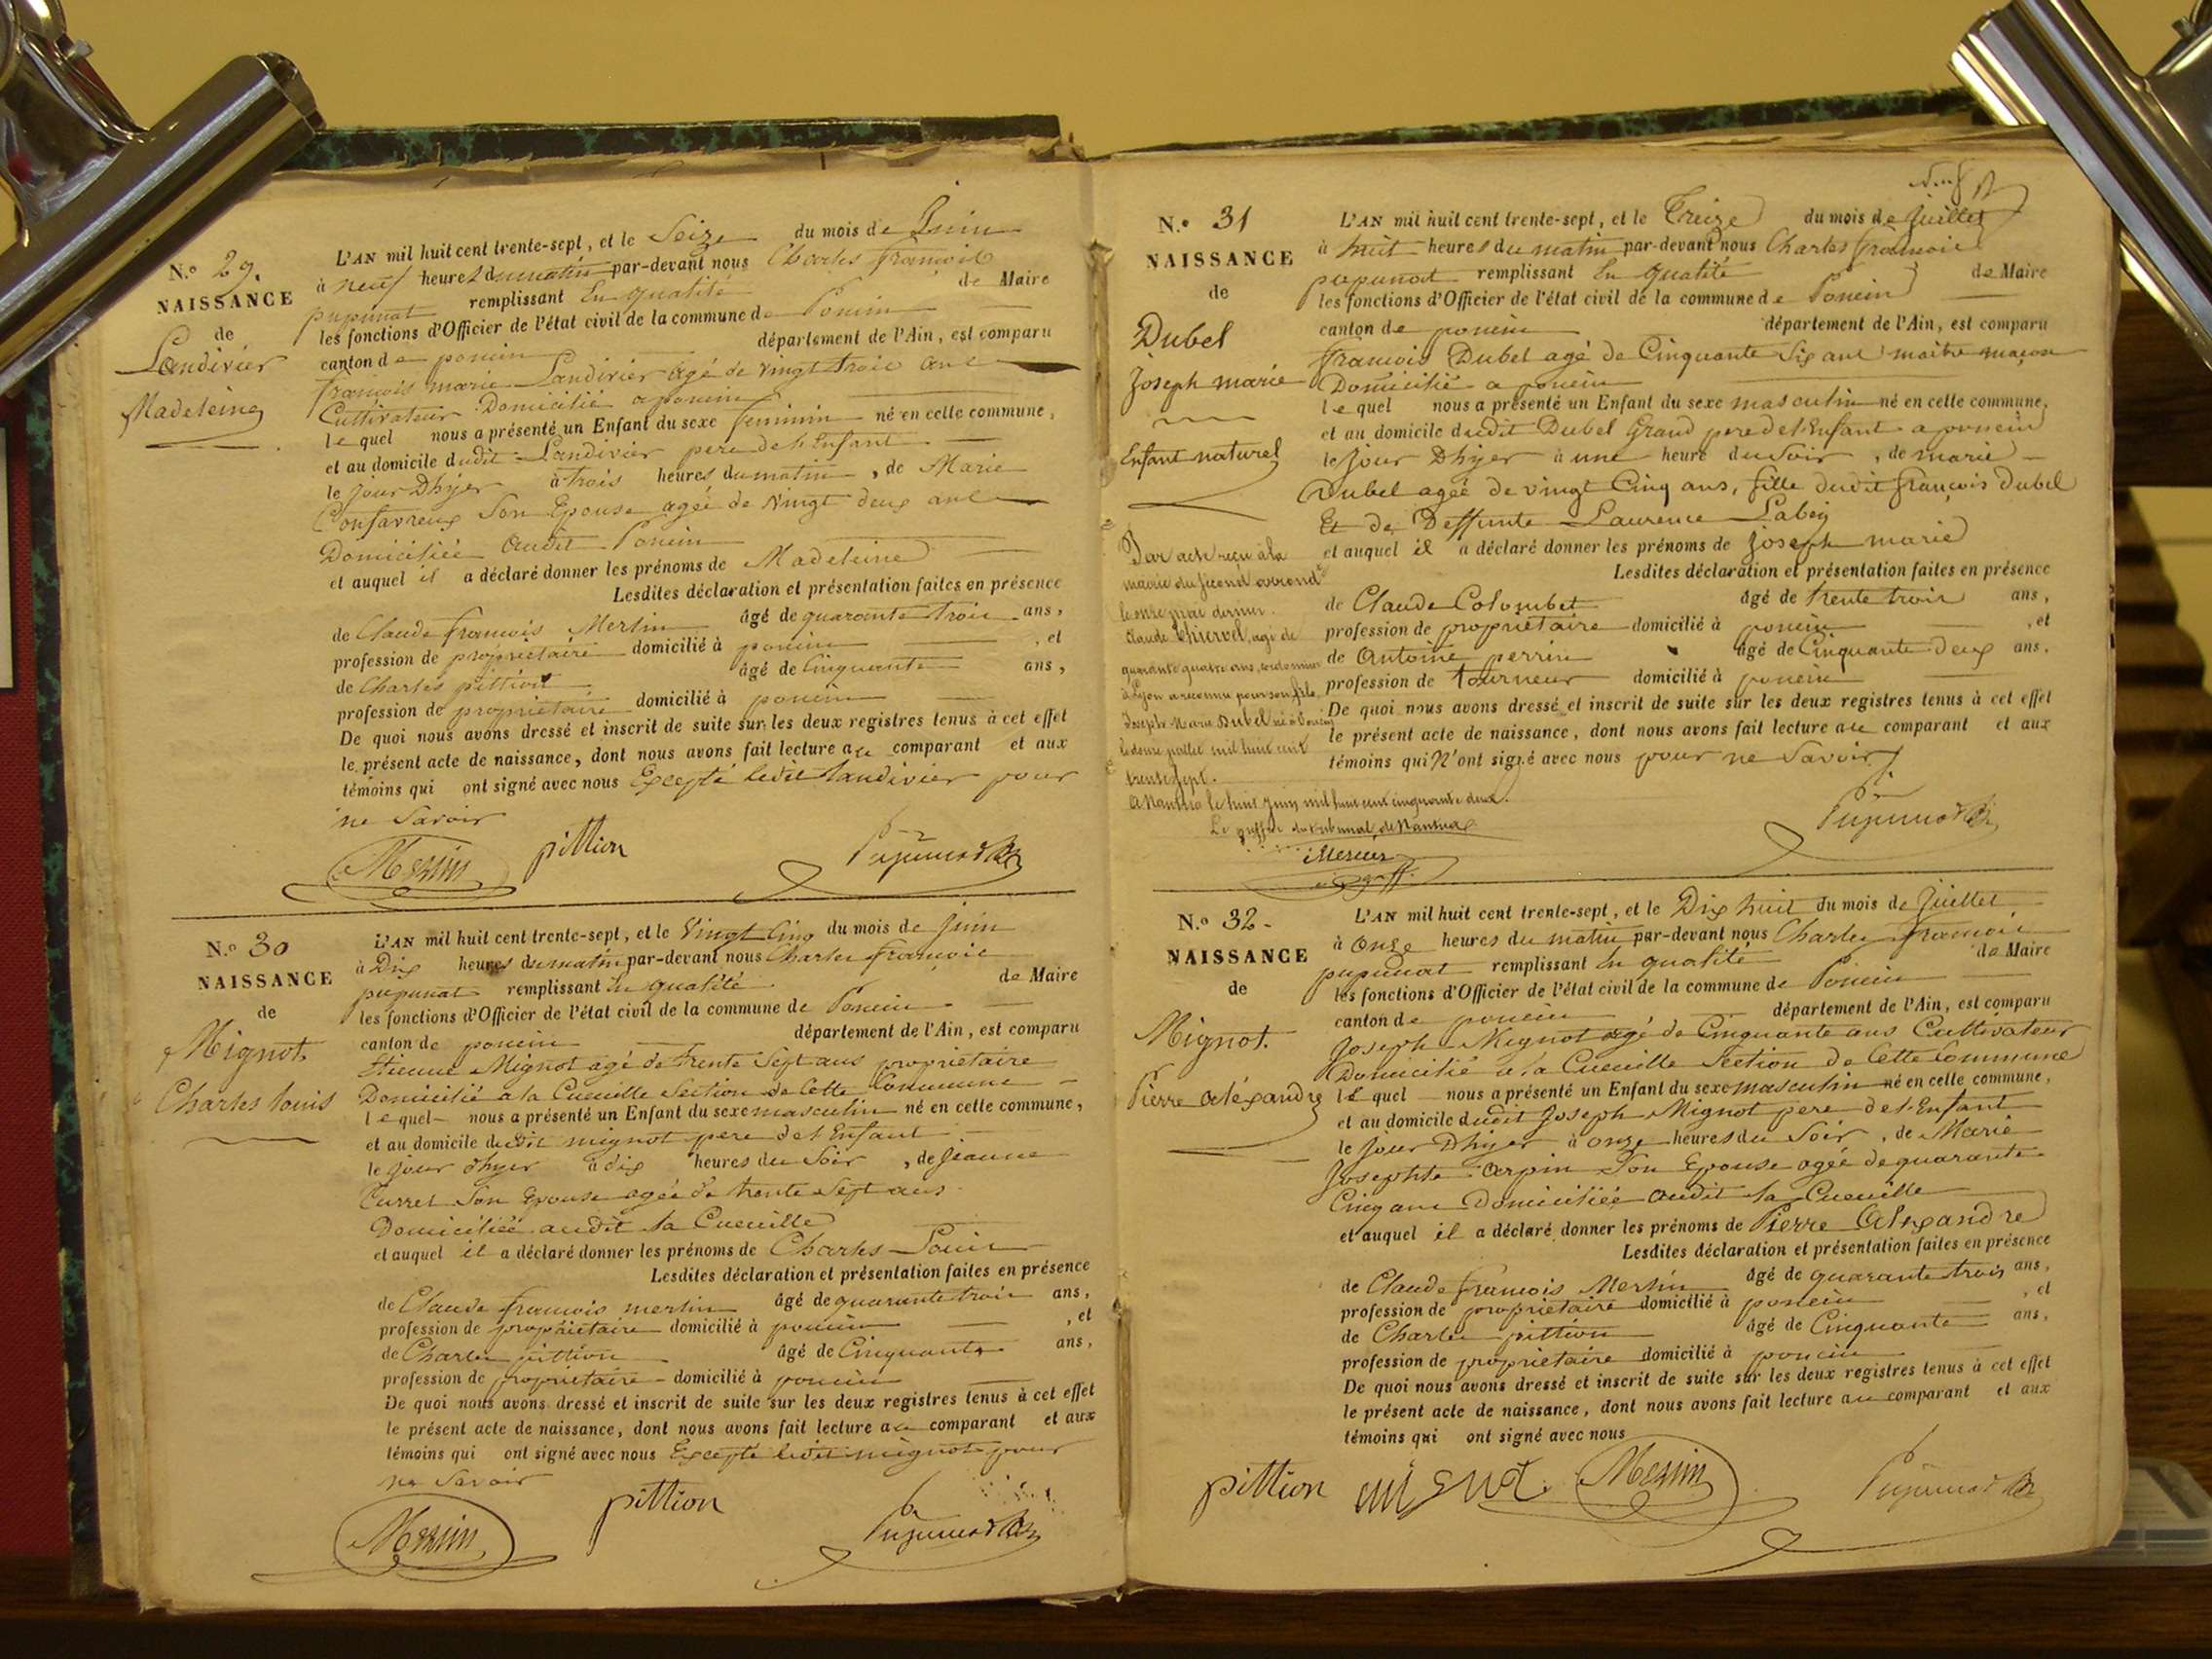 N.° 29.
NAISSANCE
de
Landivier
Madeleine
L'AN mil huit cent trente-sept, et le Seize du mois de Juin
à neuf heures du matin par-devant nous Charles françois
pupunat remplissant En qualité de Maire
les fonctions d'Officier de l'état civil de la commune de Poncin
canton de poncin département de l'Ain, est comparu
françois marie Landivier agé de vingt trois ans
Cultivateur Domicilié a poncin
lequel nous a présenté un Enfant du sexe feminin né en celle commune,
et au domicile dudit Landivier pere de l'Enfant
le jour Dhyer à trois heures du matin, de Marie
Confavreux Son Epouse agée de vingt deux ans
Domiciliée audit Poncin
et auquel il a déclaré donner les prénoms de Madeleine
Lesdites déclaration et présentation faites en présence
de Claude françois Merlin âgé de quarante trois ans,
profession de propriétaire domicilié à poncin, et
de Charles pittion âgé de Cinquante ans,
profession de propriétaire domicilié à poncin
De quoi nous avons dressé et inscrit de suite sur les deux registres tenus à cet effet
le présent acte de naissance, dont nous avons fait lecture au comparant et aux
témoins qui ont signé avec nous Excepté ledit Landivier pour
ne Savoir
Merlin pittion Pupunat
N.° 30
NAISSANCE
de
Mignot
Charles louis
L'AN mil huit cent trente-sept, et le Vingt Cinq du mois de juin
à Dix heures du matin par-devant nous Charles françois
pupunat remplissant En qualité de Maire
les fonctions d'Officier de l'état civil de la commune de Poncin
canton de poncin département de l'Ain, est comparu
Etienne Mignot agé de trente Sept ans propriétaire
Domicilié a la Cueuille Section de Cette Commune
lequel nous a présenté un Enfant du sexe masculin né en celle commune,
et au domicile dudit mignot pere de l'Enfant
le jour dhyer à dix heures du Soir, de Jeanne
Curret Son Epouse agée de trente Sept ans
Domiciliée audit la Cueuille
et auquel il a déclaré donner les prénoms de Charles Louis
Lesdites déclaration et présentation faites en présence
de Claude françois merlin âgé de quarante trois ans,
profession de propriétaire domicilié à poncin, et
de Charles pittion âgé de Cinquante ans,
profession de propriétaire domicilié à poncin
De quoi nous avons dressé et inscrit de suite sur les deux registres tenus à cet effet
le présent acte de naissance, dont nous avons fait lecture au comparant et aux
témoins qui ont signé avec nous Excepté ledit mignot pour
ne Savoir
Merlin pittion Pupunat
N.° 31
NAISSANCE
de
Dubel
Joseph marie
Enfant naturel
Par acte reçu à la
mairie du second arrond.t
le onze mai dernier.
Claude Thiervel, agé de
quarante quatre ans,
à Lyon a reconnu pour son fils
Joseph Marie Dubel né à Poncin
le douze juillet mil huit cent
trente sept.
A Nantua le huit juin mil huit cent cinquante deux.
Le greffier du tribunal de Nantua
Mercier
L'AN mil huit cent trente-sept, et le Treize du mois de juillet
à huit heures du matin par-devant nous Charles françois
pupunat remplissant En qualité de Maire
les fonctions d'Officier de l'état civil de la commune de Poncin
canton de poncin département de l'Ain, est comparu
françois Dubel agé de Cinquante Six ans maître maçon
Domicilié a poncin
lequel nous a présenté un Enfant du sexe masculin né en celle commune,
et au domicile dudit Dubel Grand pere de l'Enfant a poncin
le jour Dhyer à une heure du Soir, de marie
Dubel agée de vingt Cinq ans, fille dudit françois Dubel
Et de Deffunte Laurence Labey
et auquel il a déclaré donner les prénoms de Joseph marie
Lesdites déclaration et présentation faites en présence
de Claude Colombet âgé de trente trois ans,
profession de propriétaire domicilié à poncin, et
de Antoine perrin âgé de Cinquante Deux ans,
profession de tourneur domicilié à poncin
De quoi nous avons dressé et inscrit de suite sur les deux registres tenus à cet effet
le présent acte de naissance, dont nous avons fait lecture au comparant et aux
témoins qui N'ont signé avec nous pour ne Savoir
Pupunat
N.° 32
NAISSANCE
de
Mignot.
Pierre aléxandre
L'AN mil huit cent trente-sept, et le Dix huit du mois de Juillet
à Onze heures du matin par-devant nous Charles françois
pupunat remplissant En qualité de Maire
les fonctions d'Officier de l'état civil de la commune de Poncin
canton de poncin département de l'Ain, est comparu
Joseph Mignot agé de Cinquante ans Cultivateur
Domicilié a la Cueuille Section de Cette Commune
lequel nous a présenté un Enfant du sexe masculin né en celle commune,
et au domicile dudit Joseph Mignot pere de l'Enfant
le jour Dhyer à onze heures du Soir, de Marie
Josephte Arpin Son Epouse agée de quarante
Cinq ans Domiciliée audit la Cueuille
et auquel il a déclaré donner les prénoms de Pierre Alexandre
Lesdites déclaration et présentation faites en présence
de Claude françois Merlin âgé de quarante trois ans,
profession de propriétaire domicilié à poncin, et
de Charles pittion âgé de Cinquante ans,
profession de propriétaire domicilié à poncin
De quoi nous avons dressé et inscrit de suite sur les deux registres tenus à cet effet
le présent acte de naissance, dont nous avons fait lecture au comparant et aux
témoins qui ont signé avec nous
pittion mignot Merlin Pupunat